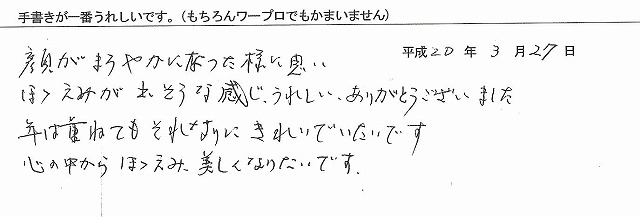 手書きが一番うれしいです。(もちろんワープロでもかまいません)
平成20年3月27日
顔がまろやかになった様に思い
ほゝえみが出そうな感じ、うれしい、ありがとうございました
年は重ねてもそれなりにきれいでいたいです
心の中からほゝえみ美しくなりたいです.